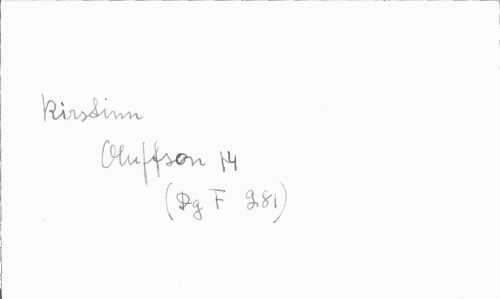 Kirstinn
Oluffson 14
(Dg F 281)